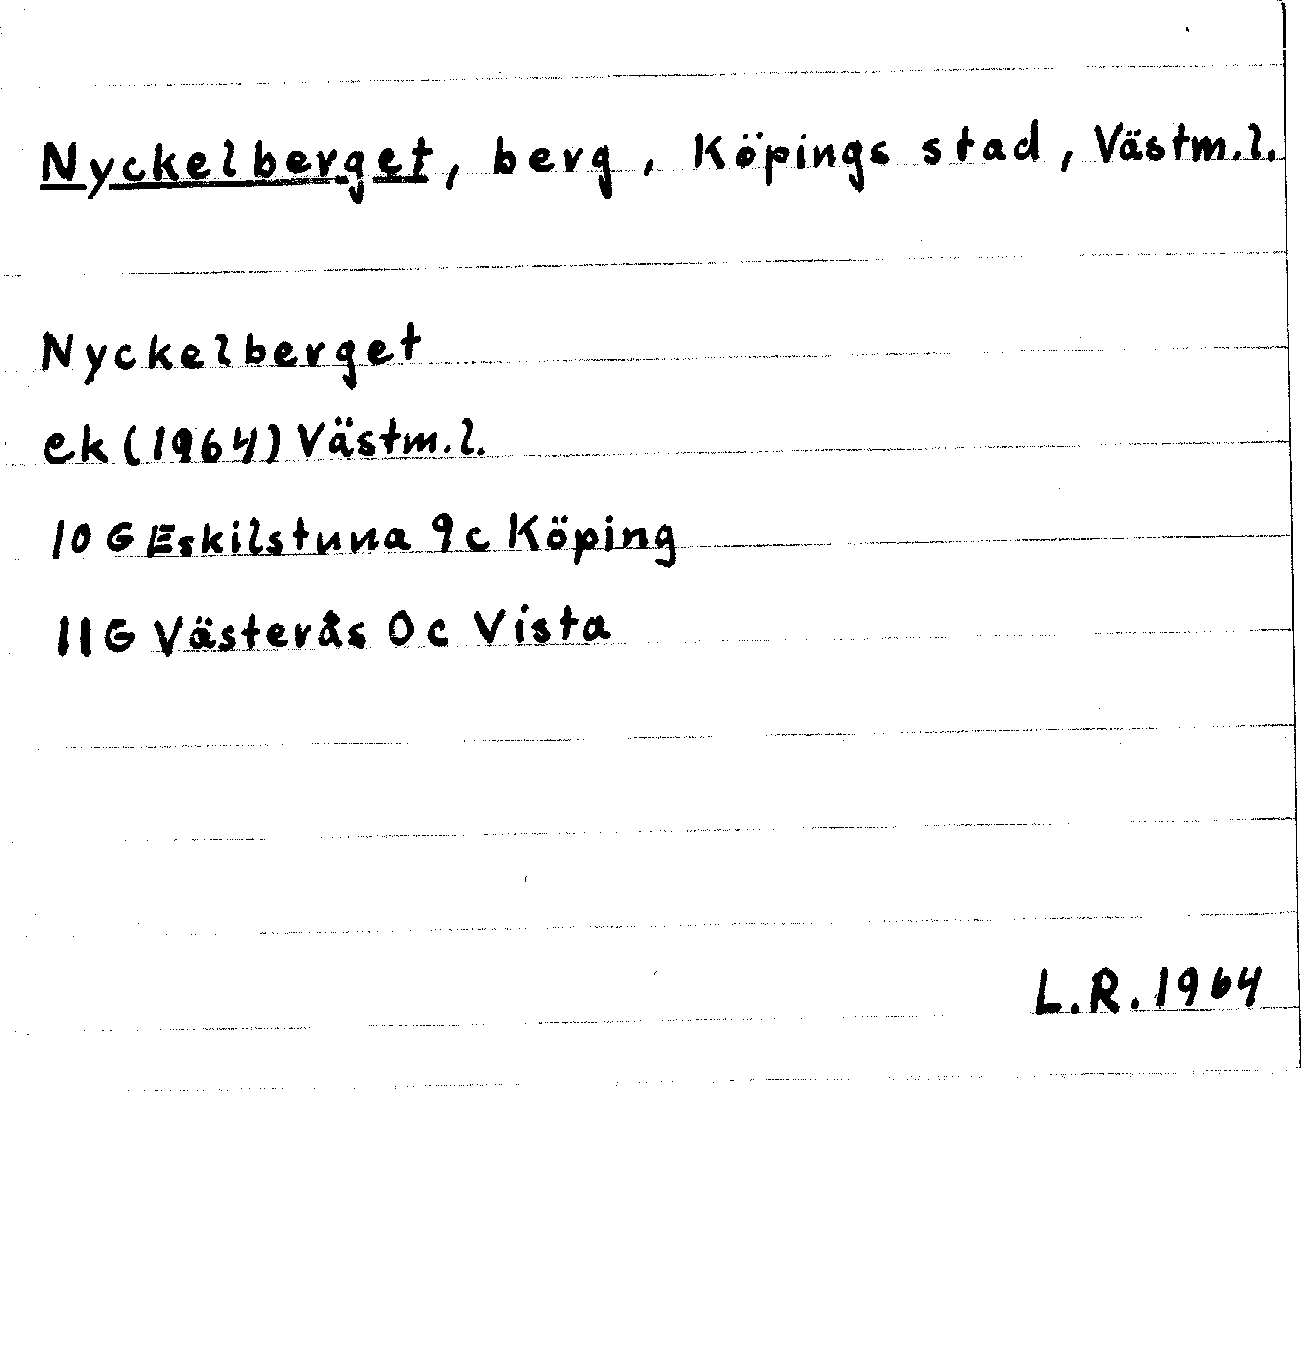 Nyckelberget, berg, Köpings stad, Västm.l.
Nyckelberget
ek (1964) Västm.l.
10 G Eskilstuna 9c Köping
11G Västerås 0c Vista
L.R. 1964